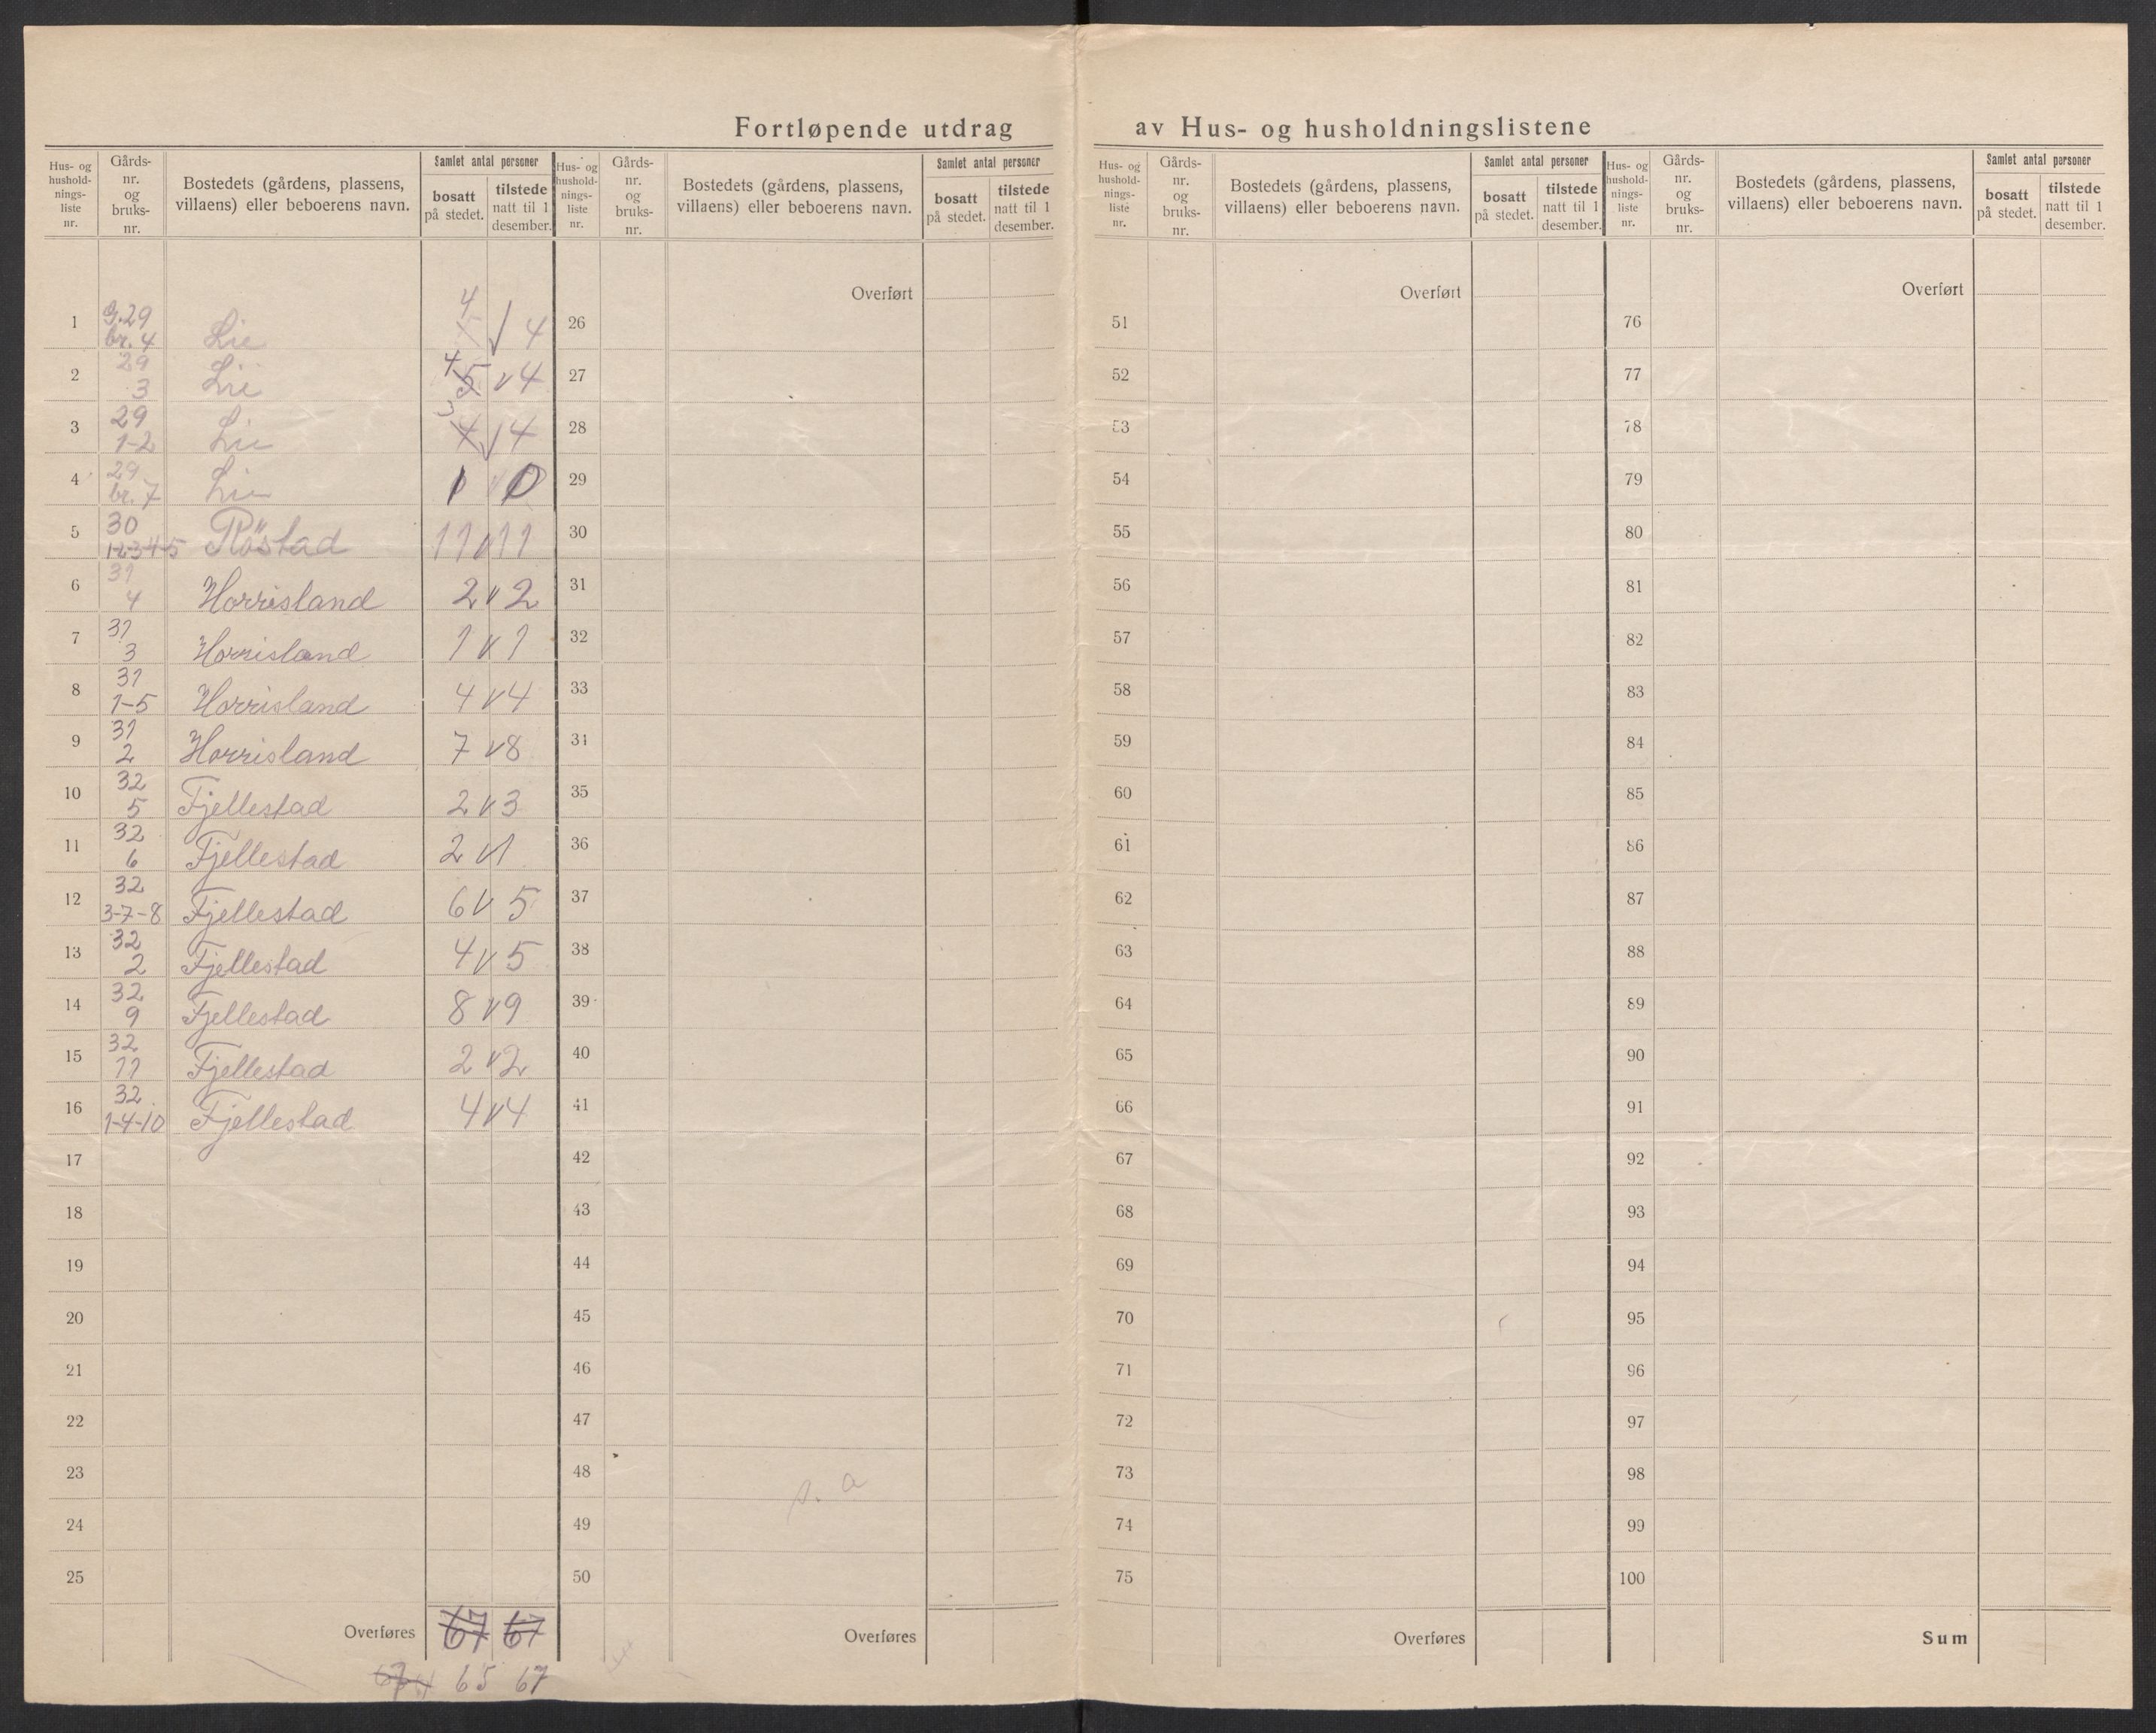 Fortløpende utdrag av Hus- og husholdningslistene
Hus- og husholdnings-liste nr. Gårds-nr. og bruks-nr. Bostedets (gårdens, plassens, villaens) eller beboerens navn. Samlet antal personer bosatt på stedet. tilstede natt til 1 desember.
Hus- og husholdnings-liste nr. Gårds-nr. og bruks-nr. Bostedets (gårdens, plassens, villaens) eller beboerens navn. Samlet antal personer bosatt på stedet. tilstede natt til 1 desember.
Hus- og husholdnings-liste nr. Gårds-nr. og bruks-nr. Bostedets (gårdens, plassens, villaens) eller beboerens navn. Samlet antal personer bosatt på stedet. tilstede natt til 1 desember.
Hus- og husholdnings-liste nr. Gårds-nr. og bruks-nr. Bostedets (gårdens, plassens, villaens) eller beboerens navn. Samlet antal personer bosatt på stedet. tilstede natt til 1 desember.
1 g.29 br.4 Lie 4 4
2 29 3 Lie 4 5 4
3 29 1-2 Lie 3 4 4
4 29 br.7 Lie 1 0
5 30 1-2-3-4-5 Röstad 11 11
6 31 4 Horrisland 2 2
7 31 3 Horrisland 1 1
8 31 1-5 Horrisland 4 4
9 31 2 Horrisland 7 8
10 32 5 Fjellestad 2 3
11 32 6 Fjellestad 2 1
12 32 3-7-8 Fjellestad 6 5
13 32 2 Fjellestad 4 5
14 32 9 Fjellestad 8 9
15 32 11 Fjellestad 2 2
16 32 1-4-10 Fjellestad 4 4
17
18
19
20
21
22
23
24
25
Overføres 67 67
65 67
Overført
26
27
28
29
30
31
32
33
34
35
36
37
38
39
40
41
42
43
44
45
46
47
48
49
50
Overføres
Overført
51
52
53
54
55
56
57
58
59
60
61
62
63
64
65
66
67
68
69
70
71
72
73
74
75
Overføres
Overført
76
77
78
79
80
81
82
83
84
85
86
87
88
89
90
91
92
93
94
95
96
97
98
99
100
Sum